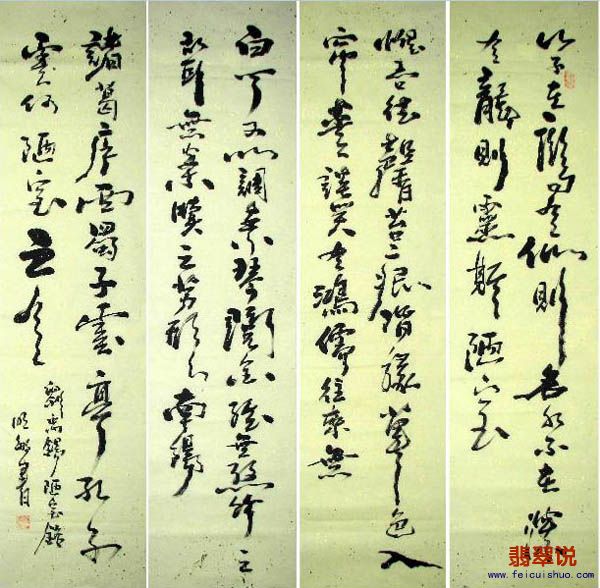 山不在高有仙則名水不在深
有龍則靈斯陋室
惟吾德馨苔痕階緑草色入
簾青談笑有鴻儒往來無
白丁可以調素琴閱金經無絲竹之
亂耳無案牘之勞形南陽
諸葛廬西蜀子雲亭孔子
雲何陋室之
劉禹錫陋室銘
書
翡翠说
www.feicuishuo.com